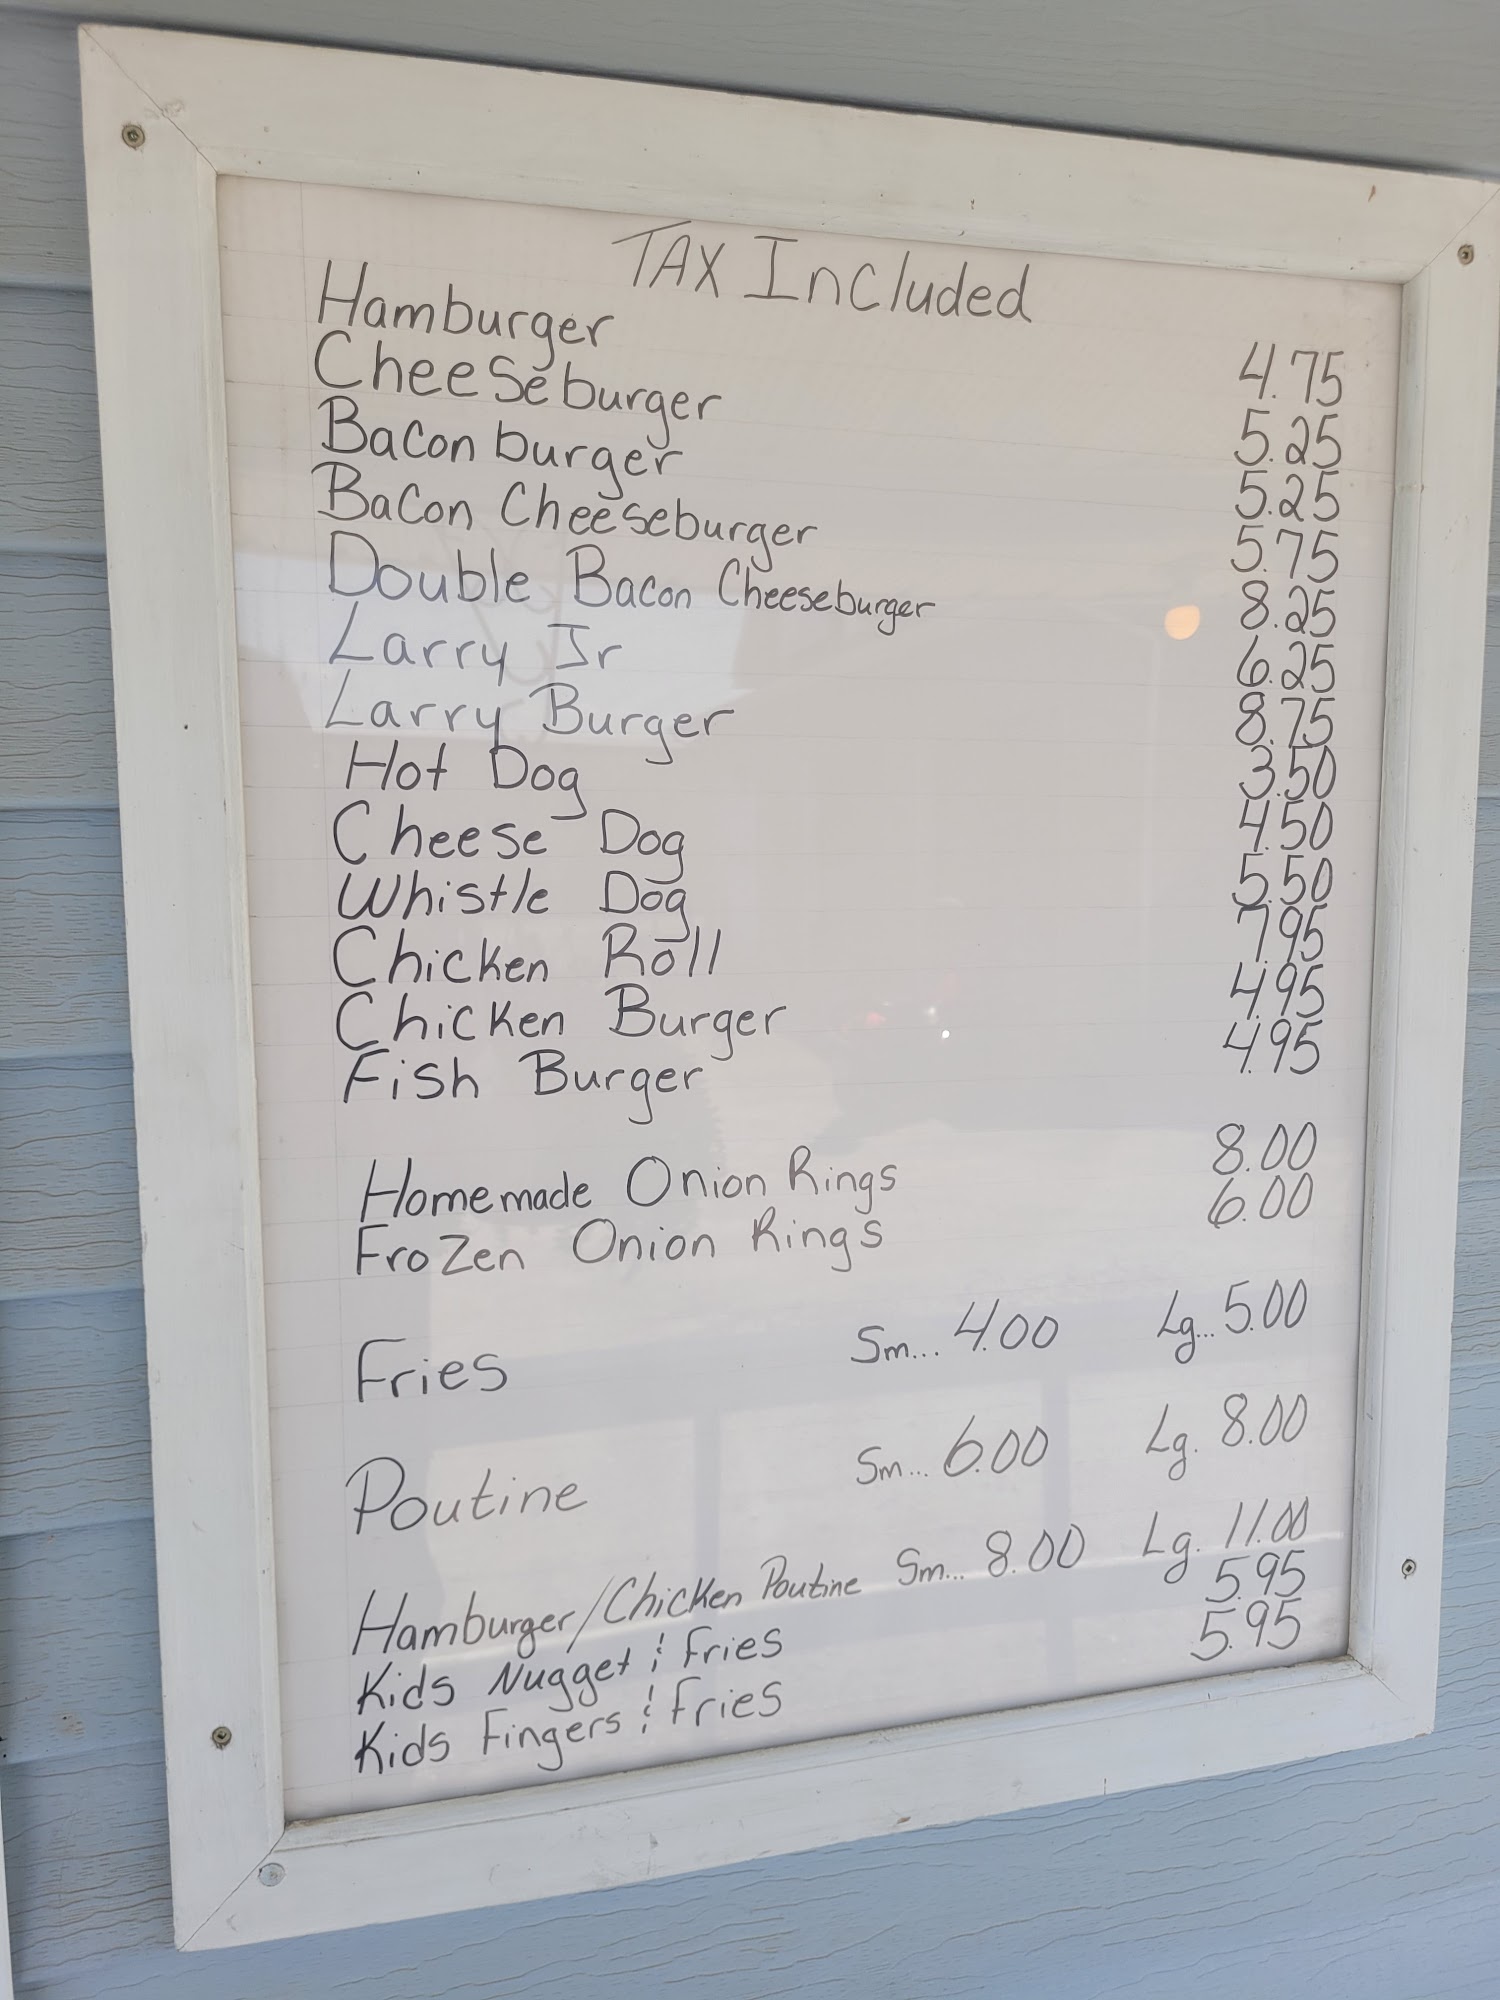 TAX Included
Hamburger 4.75
Cheeseburger 5.25
Bacon burger 5.25
Bacon Cheeseburger 5.75
Double Bacon Cheeseburger 8.25
Larry Jr 6.25
Larry Burger 8.75
Hot Dog 3.50
Cheese Dog 4.50
Whistle Dog 5.50
Chicken Roll 7.95
Chicken Burger 4.95
Fish Burger 4.95
Homemade Onion Rings 8.00
Frozen Onion Rings 6.00
Fries Sm... 4.00 Lg... 5.00
Poutine Sm... 6.00 Lg. 8.00
Hamburger/Chicken Poutine Sm... 8.00 Lg. 11.00
Kids Nugget & Fries 5.95
Kids Fingers & Fries 5.95